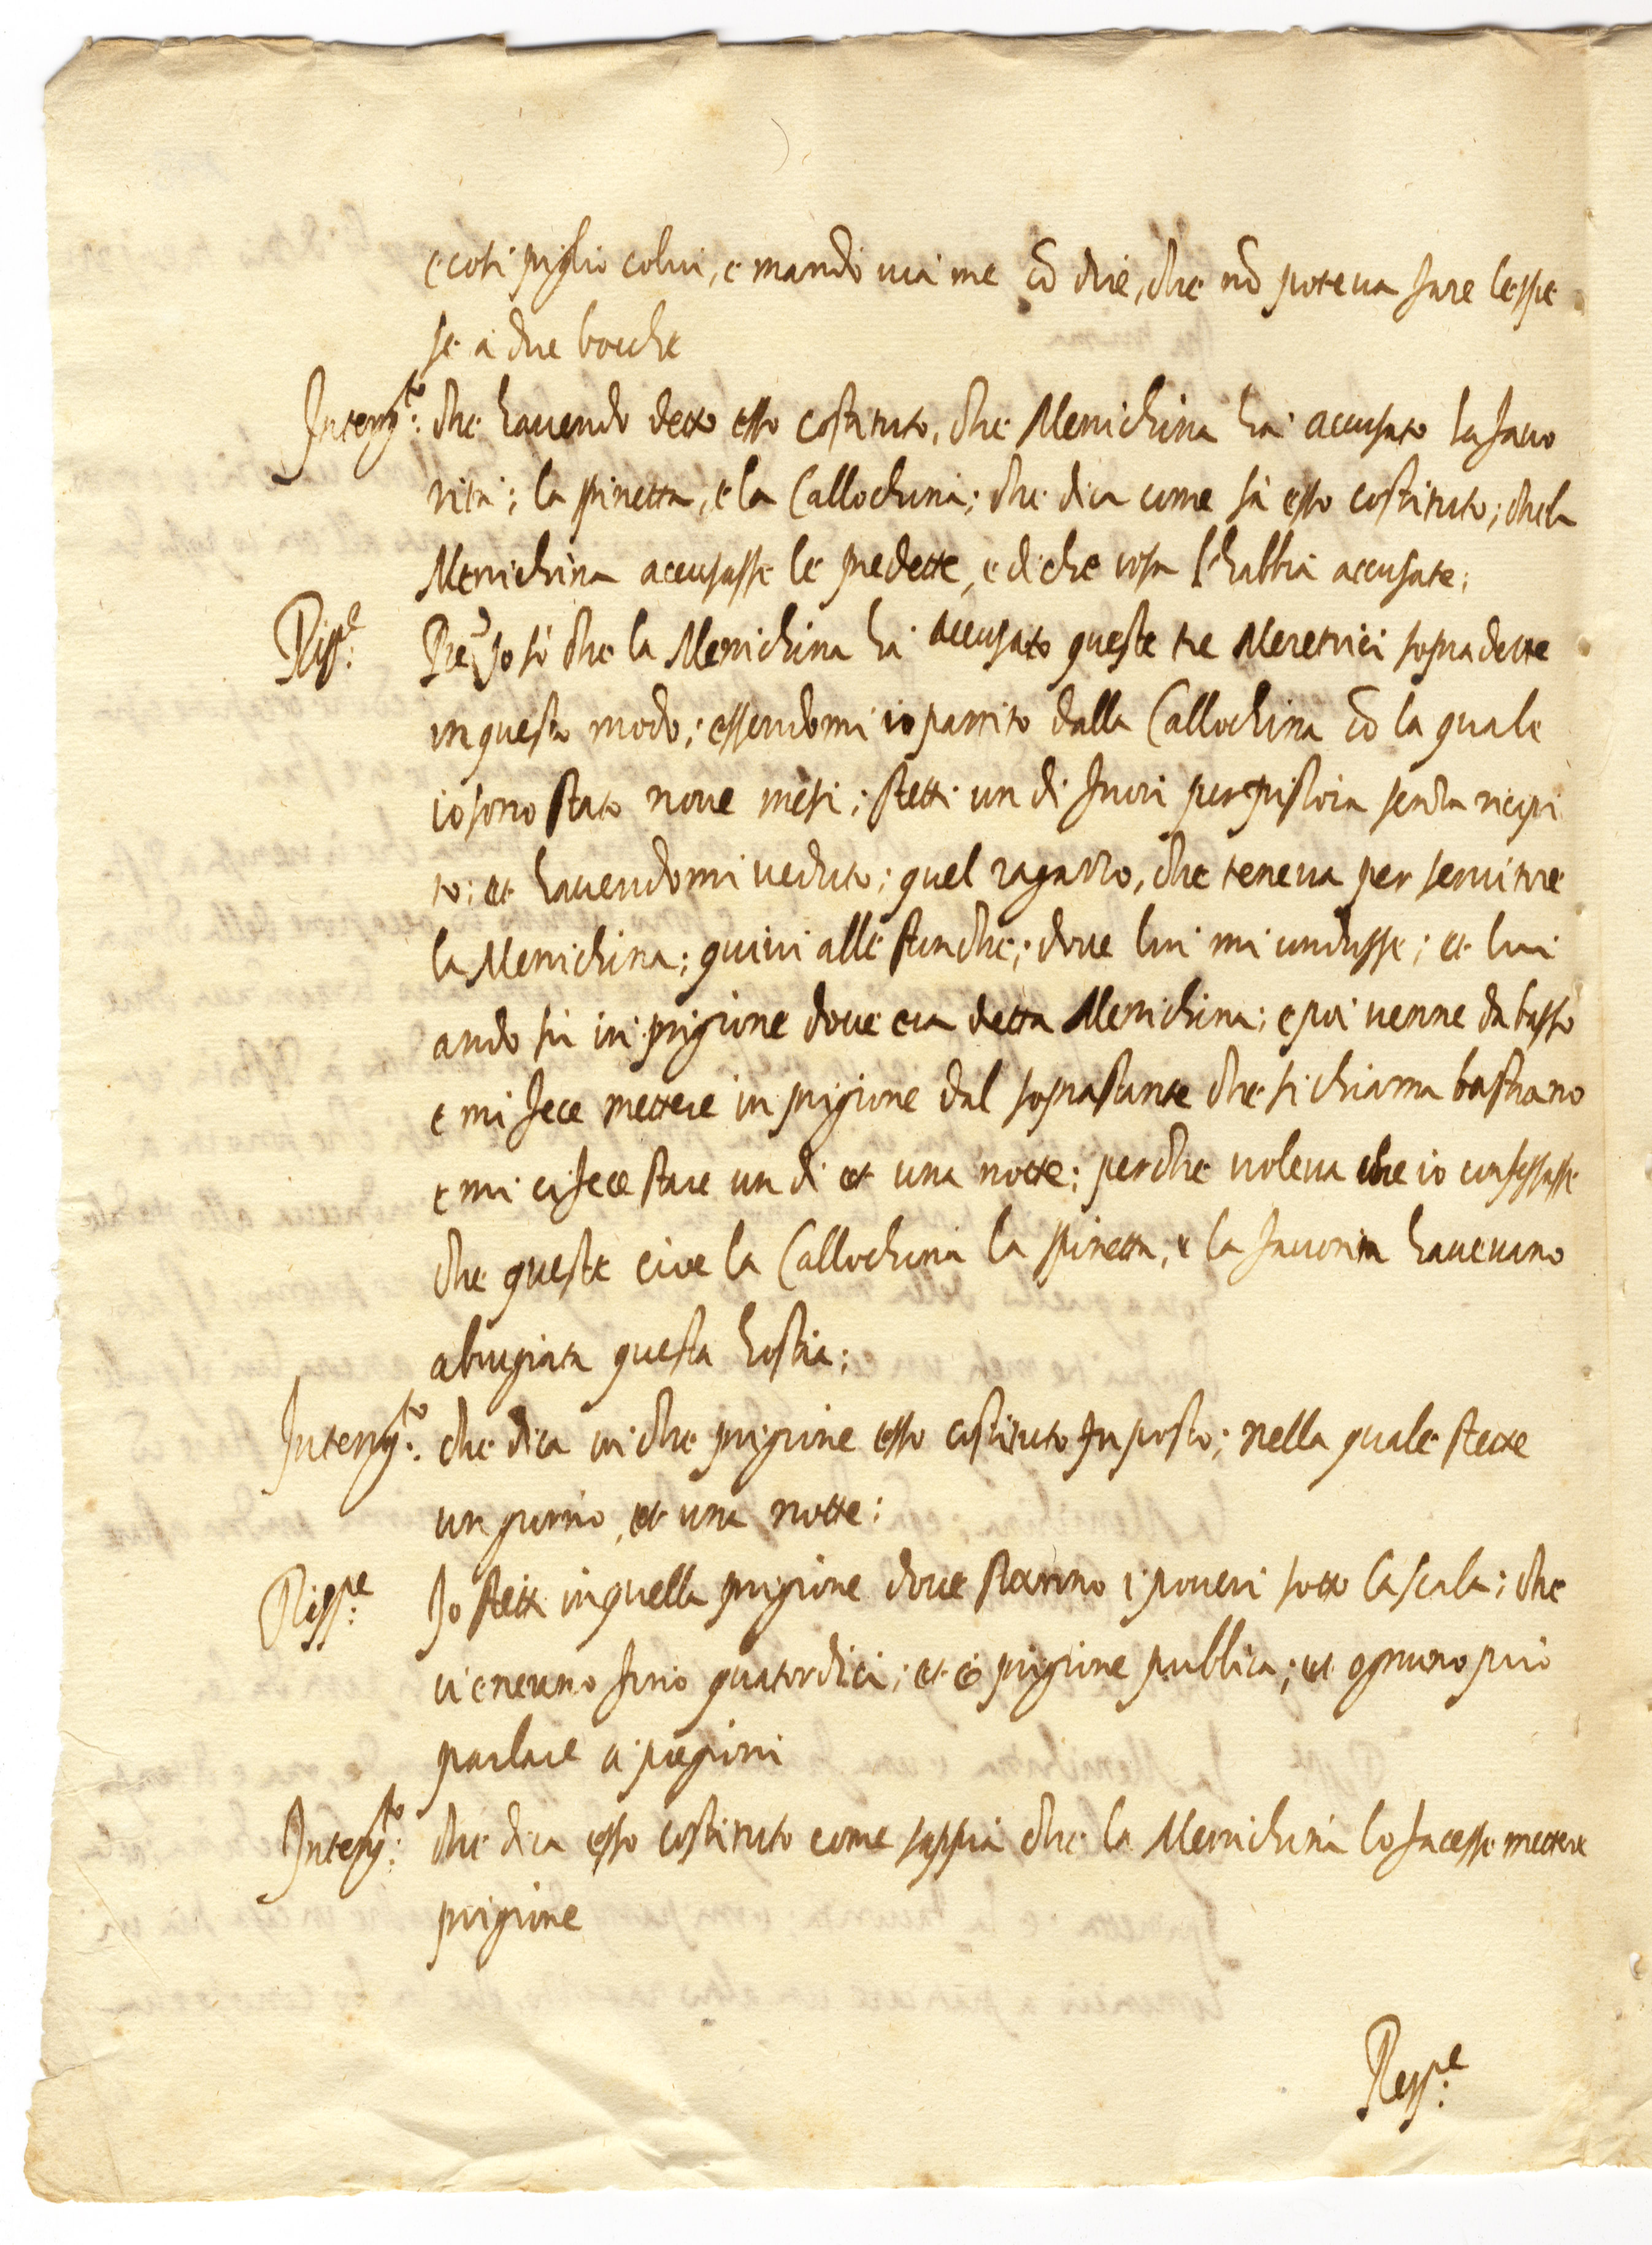 e cosi piglio colui, e mando via me cō dire, che nō poteva fare le spe
se a due bocche
Interrg.to: che havendo detto esso costituto, che Menichina ha accusato la favo
rita; la spinetta, e la Callochina; che dica come sà esso costituto; che la
Menichina accusasse le predette, e di che cosa l'habbia accusate;
Risp.e: Io sò che la Menichina ha accusato queste tre Meretrici sopradette
in questo modo; essendomi io partito dalla Callochina cō la quale
io sono stato nove mesi; stetti un dì fuori per pistoia senza ricapi
to; et havendomi veduto; quel ragazzo, che teneva per servitore
la Menichina; quivi alle stinche; dove lui mi condusse; et lui
ando sù in prigione dove era detta Menichina; e poi venne da basso
e mi fece mettere in prigione dal soprastante che si chiama bastiano
e mi ci fece stare un dì et una notte; perche voleva che io confessasse
che queste cioe la Callochina la spinetta, e la favorita havevano
abrugiata questa hostia;
Interrg.to: che dica in che prigione esso costituto fu posto; nella quale stette
un giorno, et una notte;
Risp.e: Io stetti in quella prigione dove stanno i poveri sotto la scala; che
vi enerano fino quatordici; et è prigione publica; et ognuno può
parlare a i pregioni
Interrg.to: che dica esso costituto come sappia che la Menichina lo facesse mettere
prigione
Resp.e: